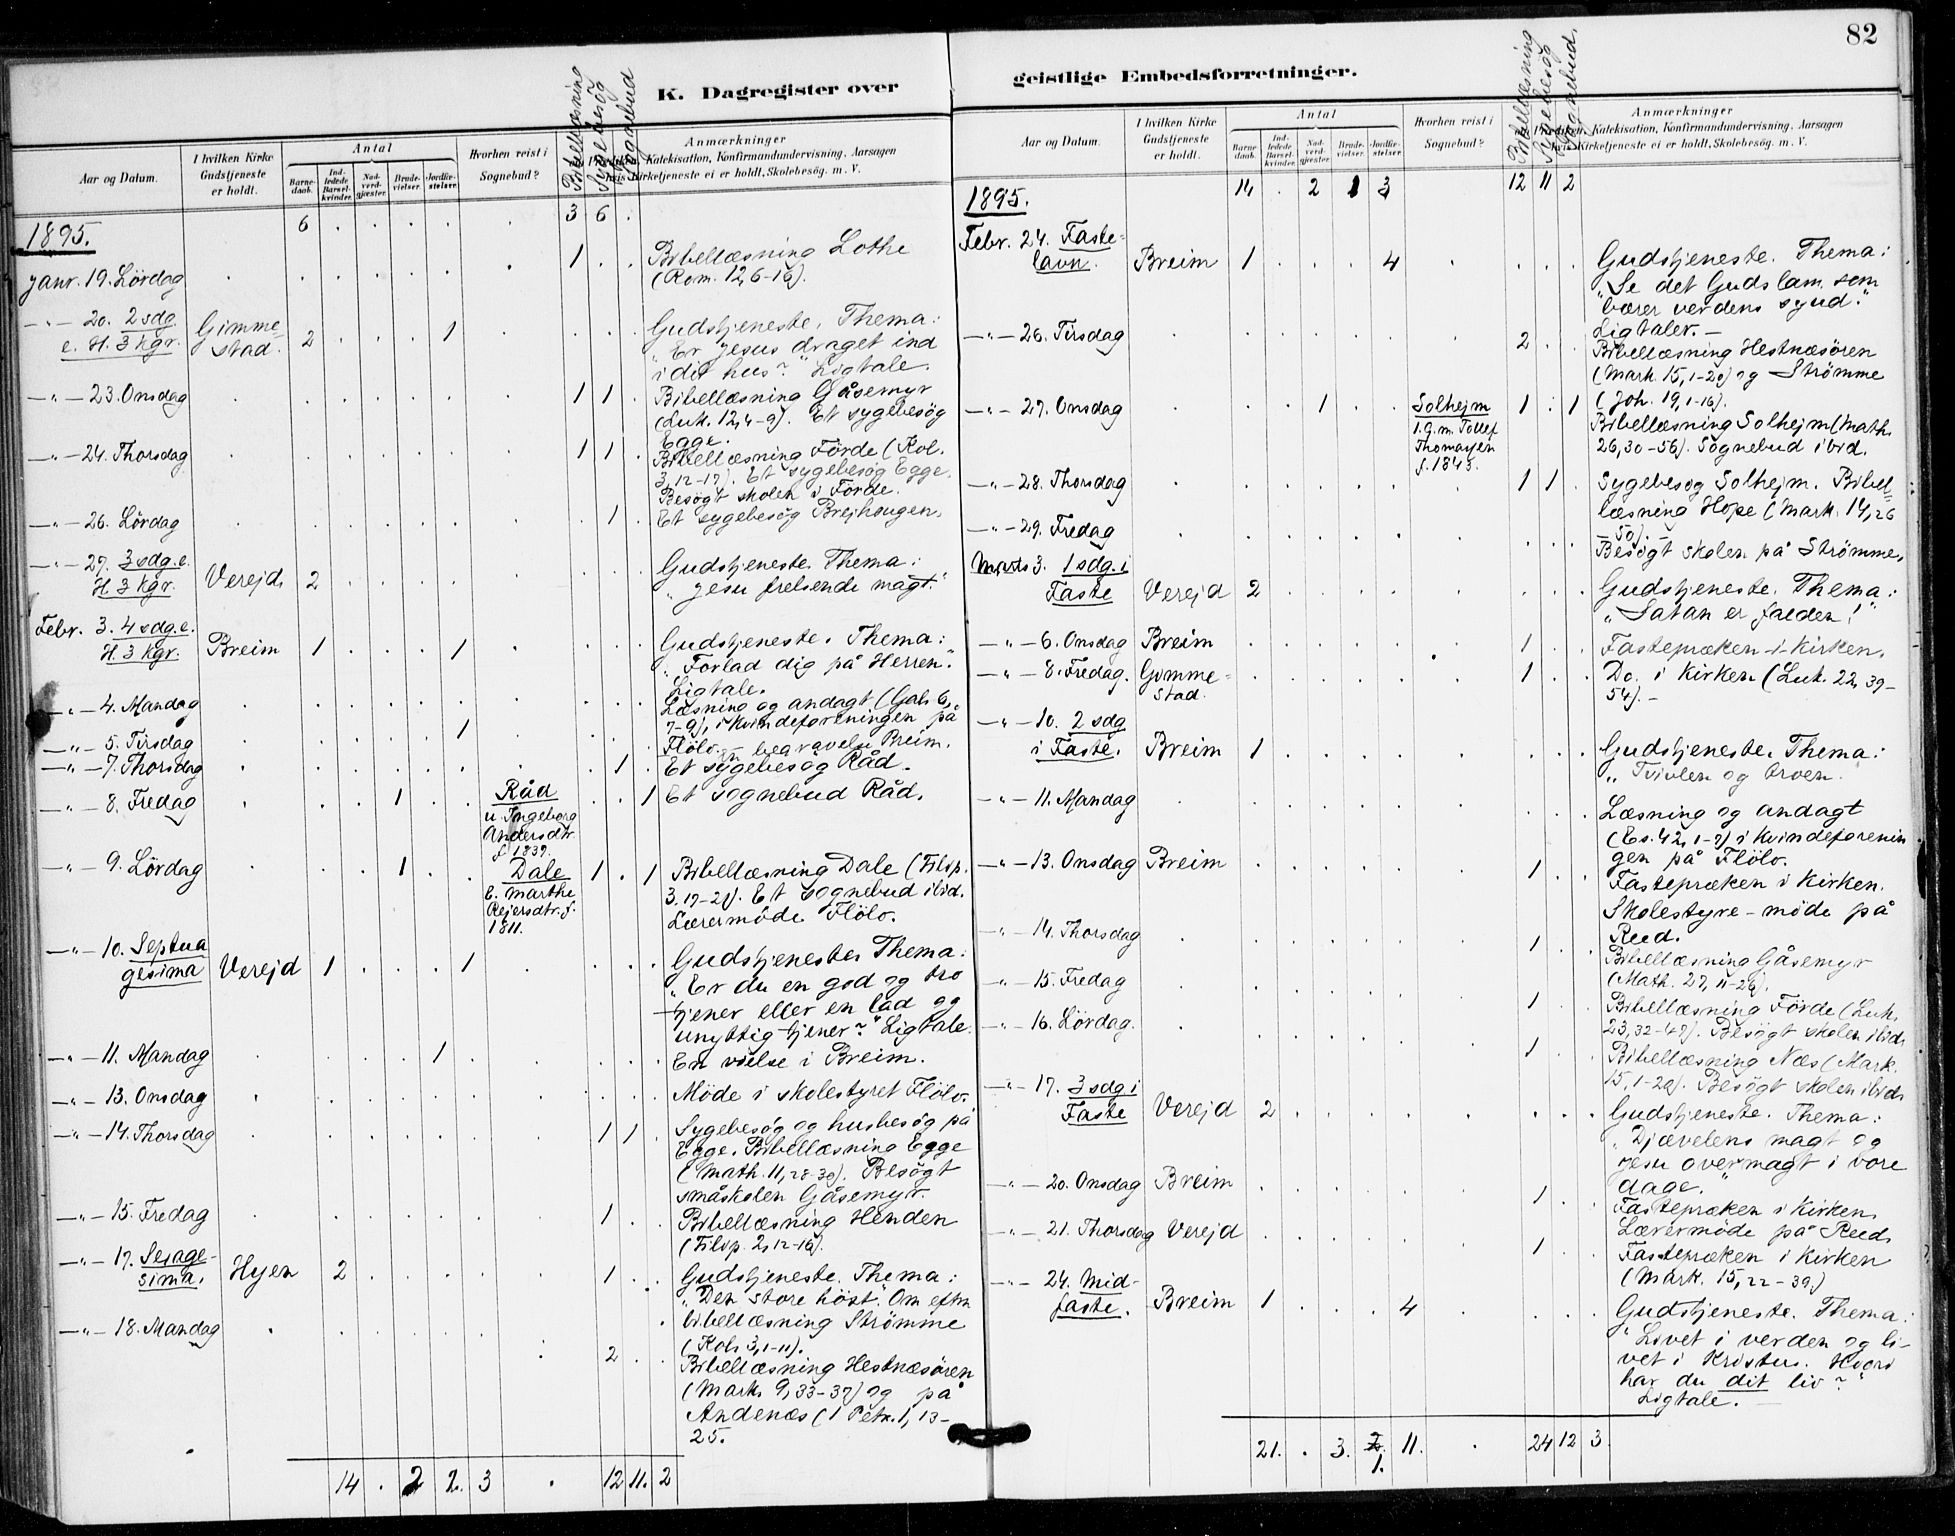 82
K. Dagregister over
geistlige Embedsforretninger.
Aar og Datum.
I hvilken Kirke
Gudstjeneste
er holdt.
Antal
Barne-
daab.
Ind-
ledede
Barsel-
kvinder.
Nad-
verd-
gjester.
Brude-
vielser.
Jordfæ-
stelser.
Hvorhen reist i
Sognebud?
Bibellæsning
Sygebesög
Sognebud
Anmærkninger
Katekisation, Konfirmandundervisning, Aarsagen
hvis Kirketjeneste ei er holdt, Skolebesög. m. V.
6 . . . . . 3 6 .
1895.
Janr. 19. Lördag 1 Bibellæsning Lothe
(Rom. 12,6-16).
-"- 20. 2 sdg Gimme- 2 1 Gudstjeneste. Thema:
e. H. 3 Kgr. stad. "Er Jesus draget ind
i dit hus?" Ligtale.
-"- 23. Onsdag 1 1 Bibellæsning Gåsemyr
(Luk. 12,4-9). Et sygebesög
Egge.
-"- 24. Thorsdag 1 1 Bibellæsning Förde (Kol.
3,12-17). Et sygebesög Egge.
Besögt skolen i Förde.
-"- 26. Lördag 1 Et sygebesög Brejhaugen.
-"- 27. 3 sdg. e. Gudstjeneste. Thema:
H. 3 Kgr. Verejd 2 "Jesu frelsende magt."
Febr. 3. 4 sdg. e. Gudstjeneste. Thema:
H. 3 Kgr. Breim 1 1 "Forlad dig på Herren."
Ligtale.
-"- 4. Mandag Læsning og andagt (Gal. 6,
7-9), i Kvindeforeningen på
-"- 5. Tirsdag 1 Flölo. - begravelse Breim.
-"- 7. Thorsdag 1 Et sygebesög Råd.
-"- 8. Fredag 1 Råd 1 Et sognebud Råd.
u. Ingeborg
Andersdtr.
f. 1839.
-"- 9. Lördag 1 Dale 1 . 1 Bibellæsning Dale (Filip.
E. Marthe 3,17-21). Et sognebud ibid.
Rejersdtr. f. Lærermöde Flölo.
1811.
-"- 10. Septua Gudstjeneste. Thema:
gesima Verejd 1 1 "Er du en god og tro
tjener eller en lad og
unyttig tjener?" Ligtale.
-"- 11. Mandag 1 En vielse i Breim.
-"- 13. Onsdag Möde i skolestyret Flölo.
-"- 14. Thorsdag 1 1 Sygebesög og husbesög på
Egge. Bibellæsning Egge
(Math. 11,28-30). Besögt
småskolen Gåsemyr.
-"- 15. Fredag 1 Bibellæsning Henden
(Filip. 2,12-16).
-"- 17. Sexage- Hyen 2 1 Gudstjeneste. Thema:
sima. "Den store höst." Om eftm
bibellæsning Strömme
(Kol. 3,1-11).
-"- 18. Mandag 2 Bibellæsning Hestnæsören
(Mark. 9,33-37) og på
Andenæs (1 Petr. 1,13-
25.
14 . 2 2. 3 . 12 11. 2
Aar og Datum.
I hvilken Kirke
Gudstjeneste
er holdt.
Antal
Barne-
daab.
Ind-
ledede
Barsel-
kvinder.
Nad-
verd-
gjester.
Brude-
vielser.
Jordfæ-
stelser.
Hvorhen reist i
Sognebud?
Bibellæsning
Sygebesög
Sognebud.
Anmærkninger
Katekisation, Konfirmandundervisning, Aarsagen
hvis Kirketjeneste ei er holdt, Skolebesög. m. V.
14 . 2 1 3 12 11 2
1895.
Febr. 24. Faste-
lavn. Breim 1 4 Gudstjeneste. Thema:
"Se det Guds lam, som
bærer verdens synd."
Ligtaler. -
-"- 26. Tirsdag 2 Bibellæsning Hestnæsören
(Mark. 15,1-20) og Strömme
(Joh. 19,1-16).
-"- 27. Onsdag 1 Solhejm 1 . 1 Bibellæsning Solhejm (Math.
1.g.m. Tollef 26,30-56). Sognebud ibid.
Thomassen
f. 1845.
-"- 28. Thorsdag 1 1 Sygebesög Solhejm. Bibel-
læsning Hope (Mark. 14,26
-50). -
-"- 29. Fredag Besögt skolen på Strömme.
Marts 3. 1 sdg. i Gudstjeneste. Thema:
Faste Verejd 2 "Satan er falden!"
-"- 6. Onsdag Breim 1 Fastepræken i Kirken.
-"- 8. Fredag. Gimme- 1 Do. i Kirken (Luk. 22,39-
stad. 54). -
-"- 10. 2 sdg Gudstjeneste. Thema:
i Faste. Breim 1 "Tvivlen og troen."
-"- 11. Mandag Læsning og andagt
(Es. 42,1-7) i Kvindeforenin
gen på Flölo.
-"- 13. Onsdag Breim 1 Fastepræken i Kirken.
Skolestyre-möde på
Reed.
-"- 14. Thorsdag 1 Bibellæsning Gåsemyr
(Math. 27,11-26).
-"- 15. Fredag 1 Bibellæsning Förde (Luk.
23,32-47). Besögt skolen ibid.
-"- 16. Lördag. 1 Bibellæsning Næs (Mark.
15,1-20). Besögt skolen ibid.
-"- 17. 3 sdg i Gudstjeneste. Thema:
Faste Verejd 2 "Djævelens magt og
Jesu overmagt i vore
dage."
-"- 20. Onsdag Breim 1 Fastepræken i Kirken.
Lærermöde på Reed.
-"- 21. Thorsdag Verejd 1 Fastepræken i Kirken
(Mark. 15,22-39.)
-"- 24. Mid-
faste. Breim 1 4 Gudstjeneste. Thema:
"Livet i verden og li-
vet i Kristus. Hvori
har du dit liv?"
Ligtale. -
21. . 3. 1. 11. . 24 12 3.